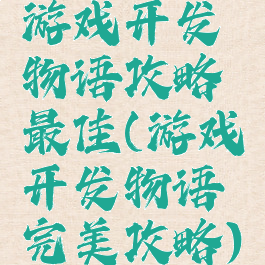 游戏开发
物语攻略
最佳(游戏
开发物语
完美攻略)